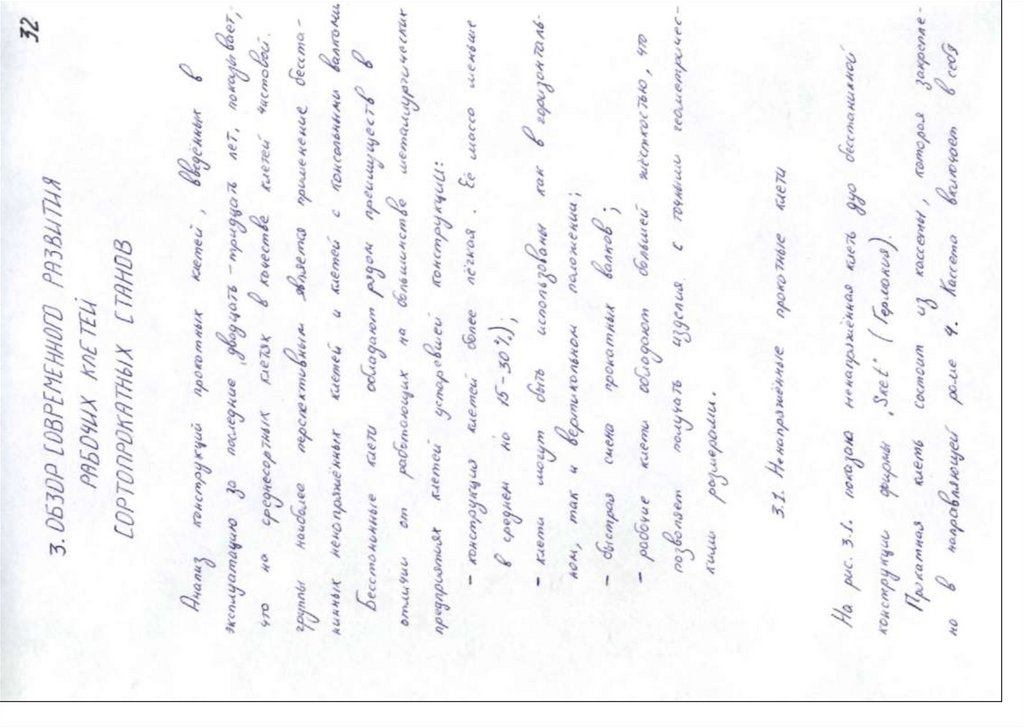 32
3. ОБЗОР СОВРЕМЕННОГО РАЗВИТИЯ
РАБОЧИХ КЛЕТЕЙ
СОРТОПРОКАТНЫХ СТАНОВ
Анализ конструкций прокатных клетей, введённых в
эксплуатацию за последние двадцать-тридцать лет, показывает,
что на среднесортных клетях в качестве клетей чистовой
группы наиболее перспективным является применение бесста-
нинных ненапряжённых клетей и клетей с консольными валками
Бесстанинные клети обладают рядом преимуществ в
отличии от работающих на большинстве металлургических
предприятиях клетей устаревшей конструкции:
- конструкция клетей более лёгкая. Её масса меньше
в среднем на 15-30%);
- клети могут быть использованы как в горизонталь-
ном, так и вертикальном положении;
- быстрая смена прокатных валков;
- рабочие клети обладают большей жёсткостью, что
позволяет получать изделия с точными геометричес-
кими размерами.
3.1. Ненапряжённые прокатные клети
На рис. 3.1. показана ненапряжённая клеть дуо бесстанинной
конструкции фирмы „Sket" (Германия)
Прокатная клеть состоит из кассеты, которая закрепле-
на в направляющей раме 4. Кассета включает в себя